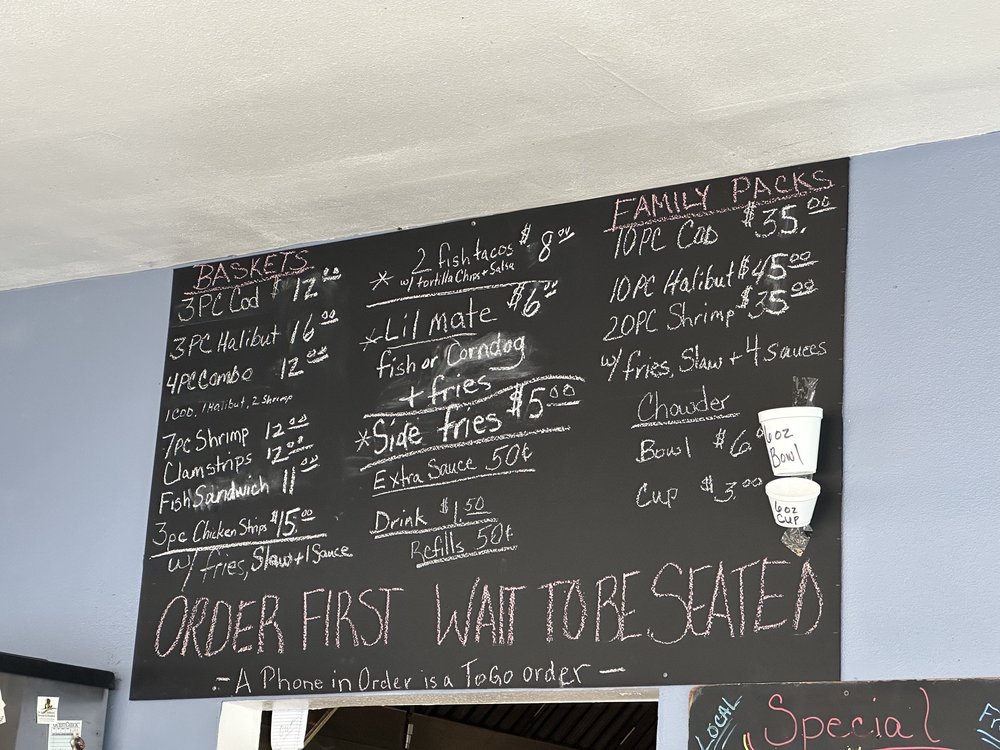 BASKETS
3PC Cod $12.00
3PC Halibut 16.00
4PC Combo 12.00
1 COD, 1 Halibut, 2 Shrimp
7PC Shrimp 12.00
Clamstrips 12.00
Fish Sandwich 11.00
3pc Chicken Strips $15.00
w/ fries, Slaw + 1 Sauce
* 2 fish tacos $8.00
w/ tortilla Chips + Salsa
* Lil mate $6.00
fish or Corndog
+ fries
* Side fries $5.00
Extra Sauce 50¢
Drink $1.50
Refills 50¢
FAMILY PACKS
10PC COD $35.00
10PC Halibut $45.00
20PC Shrimp $35.00
w/ fries, Slaw + 4 Sauces
Chowder
Bowl $6.
Cup $3.00
oz
Bowl
6oz
CUP
ORDER FIRST WAIT TO BE SEATED
- A Phone in Order is a ToGo order -
LOCAL
Special